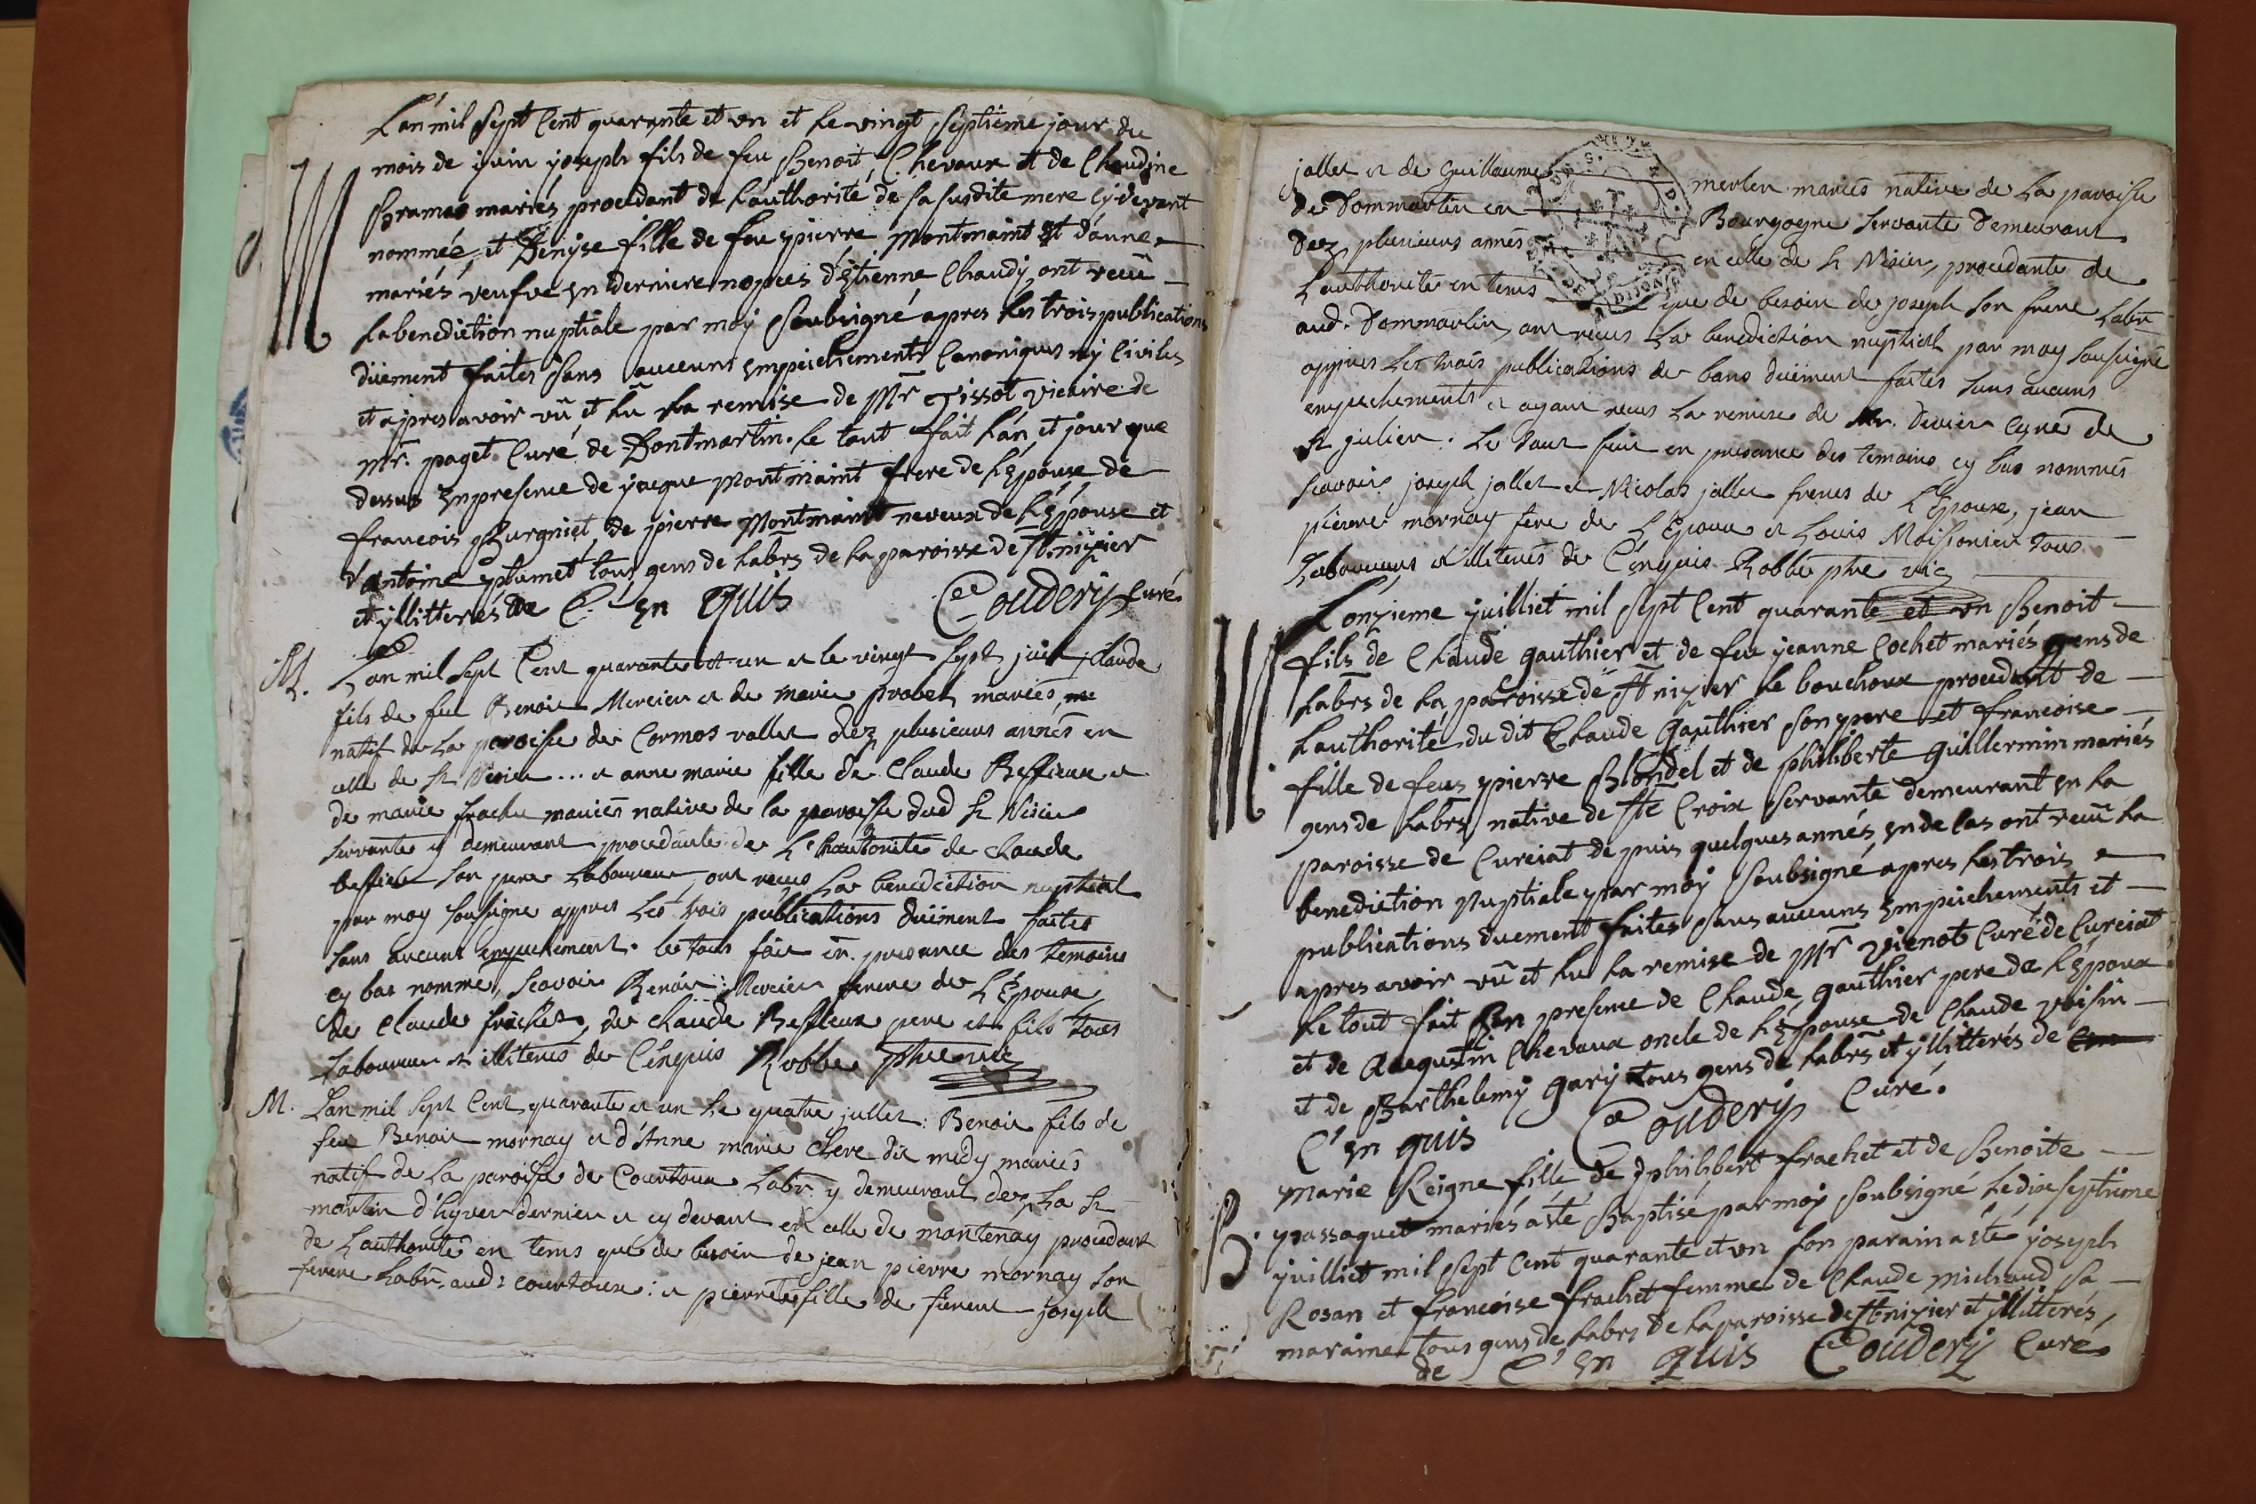 L'an mil sept Cent quarante et un et le vingt septième jour du
M
mois de juin joseph fils de feu Benoit Chevaux et de Claudine
mariés procedant de l'authorité de sa susdite mere cy devant
nommée, et Denyse fille de feu pierre Montmaint et d'anne
mariés veufve en derniere nopces d'Etienne Chaudy, ont recû
la benediction nuptiale par moy Soubsigné apres les trois publications
düement faites sans aucuns empeichements Canoniques ny Civiles
et apres avoir vû et lû la remise de Mr Tissot vicaire de
Mr. paget Curé de Dontmartin. le tout fait l'an et jour que
dessus en presence de jacque Montmaint frere de l'Epouse, de
francois Burgniet, de pierre Montmaint neveux de l'Epouse et
d'antoine plumet tous gens de labrs de la paroisse de St. nizier
et yllitterés de C. en quis Couderij Curé
M. Lan mil sept Cent quarante et un et le vingt sept juin, claude
fils de feu Benoit Mercier et de marie provet, mariés,
natif de la paroisse de Cormos vallet dez plusieurs annés en
celle de St Nisier ... et anne marie fille de Claude Beffieux et
de marie frachet mariés native de la paroisse dud St Nisier
servante y demeurant procedante de L'hautorité de claude
beffieu son pere laboureur, ont reçus La benediction nuptial
par moy sousigne appres Les trois publications düement faites
sans aucuns empechement. le tous fait en presance des temoins
cy bas nomme, scavoir Benoit Mercier frere de L'Epoux,
de Claude frachet, de claude Beffieux pere et fils tous
Laboureur et illiterés de C'enquis Robbe ptre vic
M. Lan mil sept Cent quarante et un le quatre jullet: Benoit fils de
feu Benoit mornay et d'Anne marie Clere dit medy mariés
natif de la paroisse de Courtoux Labr y demeurant dez la St
martin d'hyver dernier et cy devant en celle de mantenay procedant
de Lauthorité en tems que de besoin de jean pierre mornay son
frere labr. aud: courtoux: et pierrette fille de furent joseph
jallet et de Guillaume merlen mariés native de La paroisse
de Dommartin en Bourgogne servante demeurant
dez plusieurs annés en celle de St Nisier, procedante de
L'authorité en tems que de besoin de joseph son frere labr
aud. Dommartin, ont reçus La benediction nuptiale par moy sousigné
appres Les trois publications de bans düement faites sans aucuns
empechements et ayant reçus La remise de Mr. Curé de
St julien. Le tout fait en presance des temoins cy bas nommés
scavoir joseph jallet et Nicolas jallet freres de L'Epouse, jean
pierre mornay frere de L'Epoux et Louis Moissonier tous
Laboureurs et illiterés de C'enquis Robbe ptre vic
M
L'onzieme juilliet mil sept Cent quarante et un Benoit
fils de Claude gauthier et de feu jeanne Cochet mariés gens de
labrs de la paroisse de St nizier le bouchoux procedant de
l'authorité du dit Claude Gauthier son pere et francoise
fille de feus pierre Blondel et de philiberte Guillermin mariés
gens de labrs native de Ste Croix servante demeurant en la
paroisse de Curciat depuis quelques annés, en de cas ont recû la
benediction Nuptiale par moy Soubsigné apres les trois
publications duement faites sans aucuns empeichements et
apres avoir vû et lu la remise de Mr vienot Curé de Curciat
le tout fait en presence de Claude gauthier pere de l'Epoux
et de Augustin Chevaux oncle de l'Epouse de Claude voisin
et de Barthelemy Gary tous gens de labrs et yllitterés de
C'en quis Couderij Curé.
B.
Marie Reigne fille de philibert frachet et de Benoite
passaquet mariés a été Baptisé par moy soubsigné le dix septieme
juilliet mil sept Cent quarante et un son parain a été joseph
Rosan et francoise frachet femme de Claude michaud sa
maraine tous gens de labrs de la paroisse de St nizier et yllitterés,
de C'en quis Couderij Curé